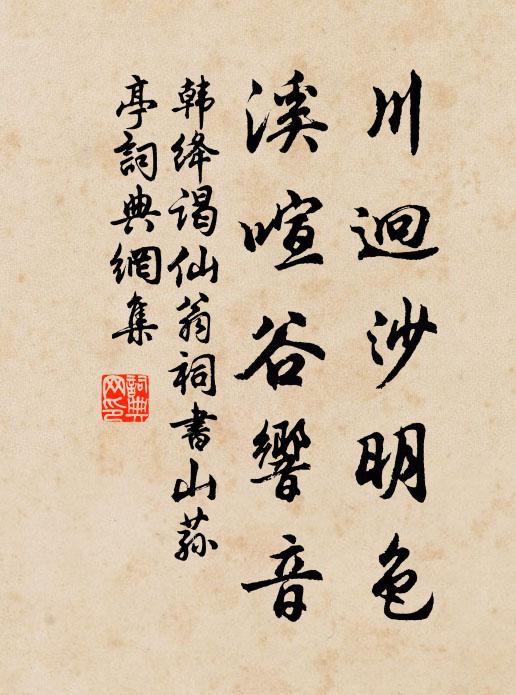 川迴沙明色
溪喧谷響音
韩绛谒仙翁祠書山蓀
亭詞典網集
詞典網印